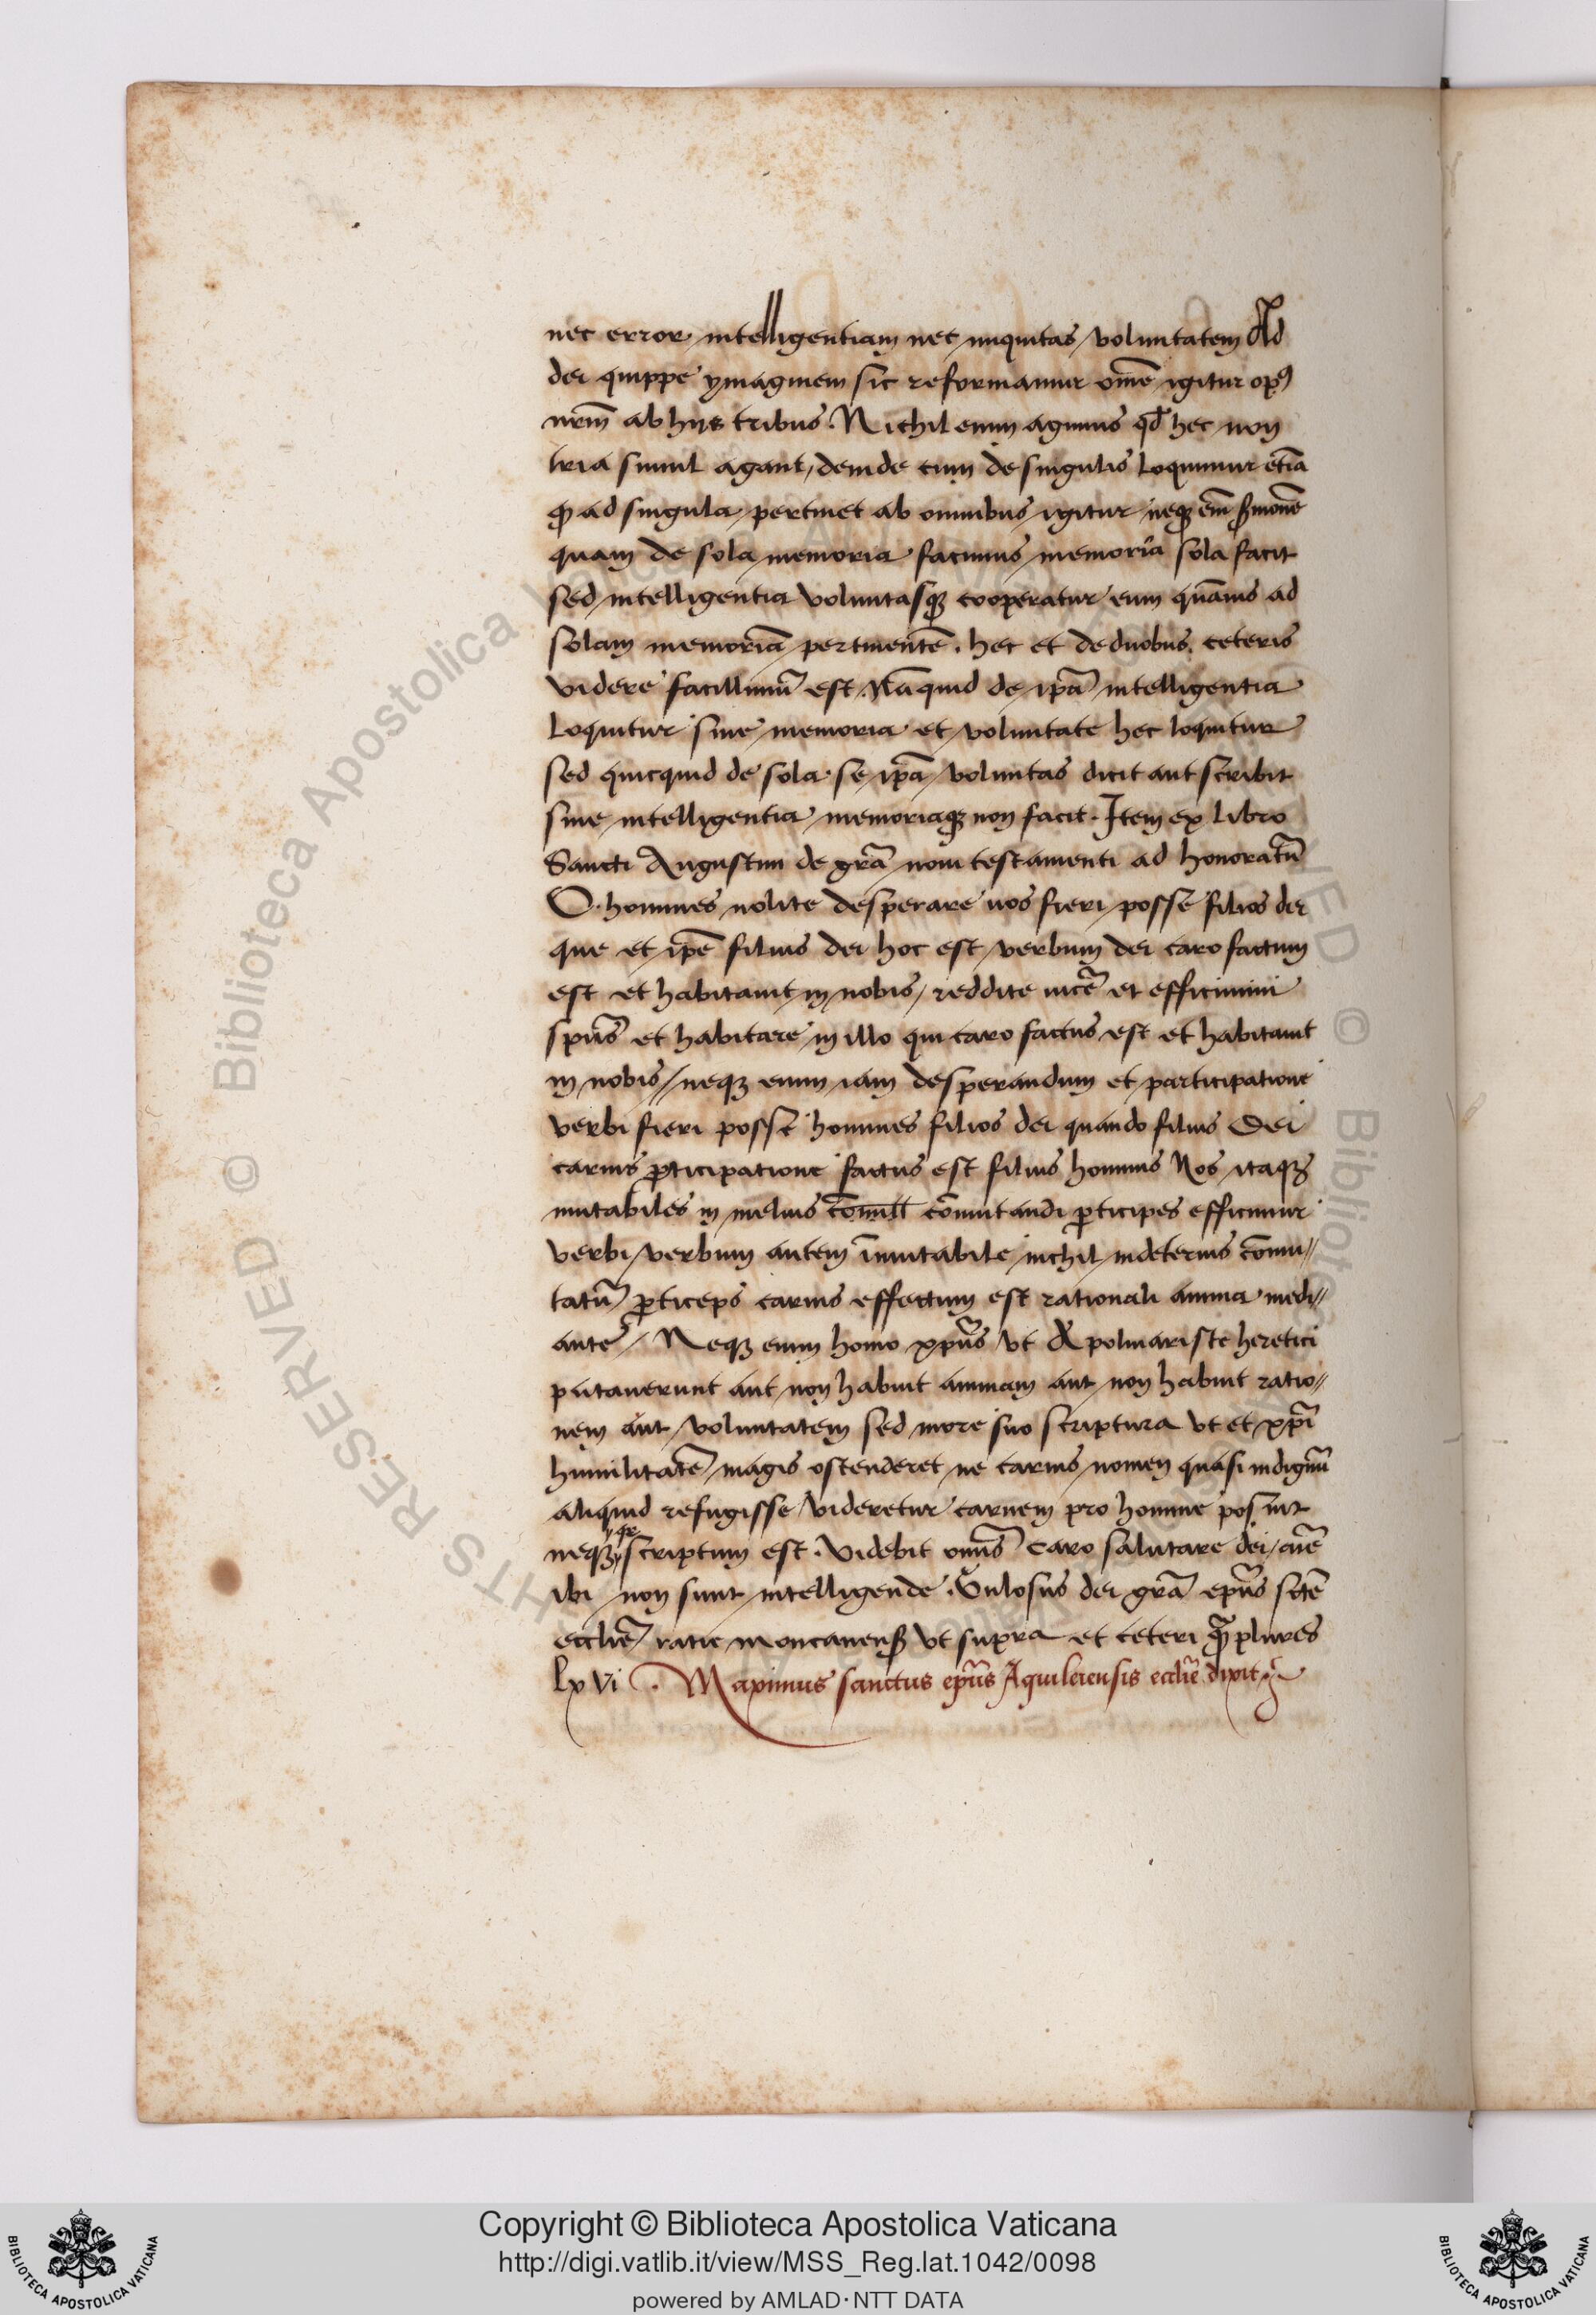 nec error intelligentiam nec iniquitas voluntatem Ad
dei quippe ymaginem sic reformamur om̄e igitur opꝰ
nr̄m ab hijs tribus. Nichil enim agimus qđ hec non
tria simul agant, deinde cum de singulis loquimur etiā
ꝙ ad singula pertinet ab omnibus igitur neqꝫ em̄ ẜmonē
quam de sola memoria facimus memoria sola facit
sed intelligentia voluntasqꝫ cooperatur eum quāuis ad
solam memoriā pertinentē. hec et de duobus ceteris
videre facillimū est. Nā quid de ip̄a intelligentia
loquitur sine memoria et voluntate hec loquitur
sed quicquid de sola se ip̄a voluntas dicit aut scribit
sine intelligentia memoriaqꝫ non facit. Item ex libro
Sancti Augustini de gr̄a noui testamenti ad honoratū
O homines nolite desperare uos fieri posse filios dei
que et ip̄e filius dei hoc est verbum dei caro factum
est et habitauit in nobis, reddite uicē et efficimini
spūs et habitare in illo qui caro factus est et habitauit
in nobis / neqꝫ enim iam desperandum et participatione
verbi fieri posse homines filios dei quando filius Dei
carnis ꝑticipatione factus est filius hominis Nos itaqꝫ
mutabiles in melius com̄utandi ꝑticipes efficimur
verbi / verbum autem īmutabile nichil in deterius cōmu//
tatū ꝑticeps carnis effectum est rationali anima medi//
ante / Neqꝫ enim homo xp̄us vt Apolinariste heretici
putauerunt aut non habuit animam aut non habuit ratio//
nem aut voluntatem sed more suo scriptura vt et xp̄i
humilitatē magis ostenderet ne carnis nomen quasi indignū
aliquid refugisse videretur carnem pro homine posuit
neqꝫ scriptum est. Videbit om̄is caro salutare dei / aīe
ibi non sunt intelligende. Gulosus dei gr̄a ep̄us sc̄te
eccl̄ie ut supra et ceteri plures
lxvi . Maximus sanctus ep̄us Aquileiensis eccl̄ie dixit